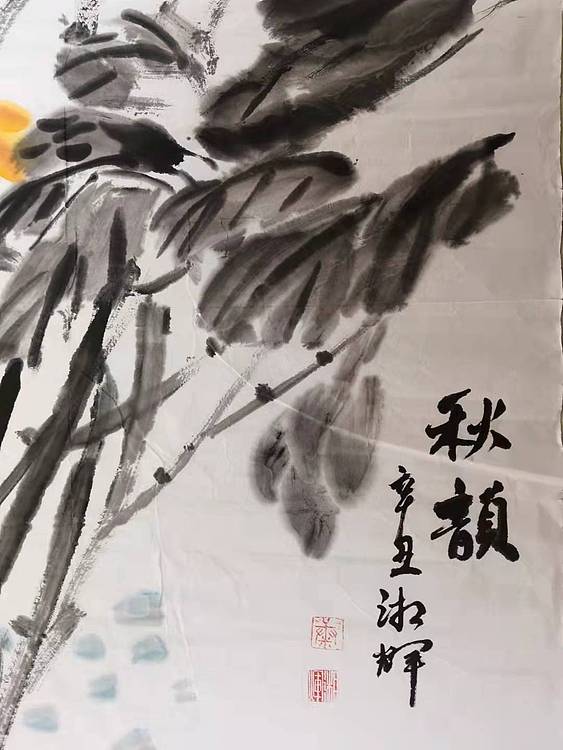 秋韻
辛丑湘輝